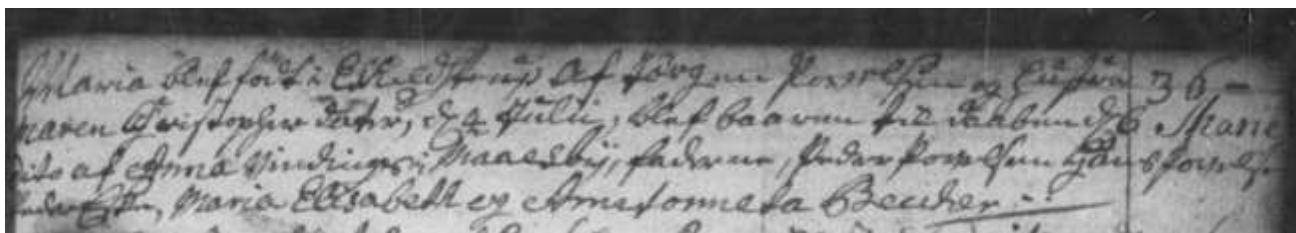 Maria blef födt i Eskildstrup af Jörgen Povelsen og hustru 36 -
Maren Christopher dater, d 4 Julii, blef baaren til daaben d 6
dito af Anna Vindinges i Maaesbÿ, faderne, Peder Povelsen Hans Povels
Maria Elisabeth og Beicher